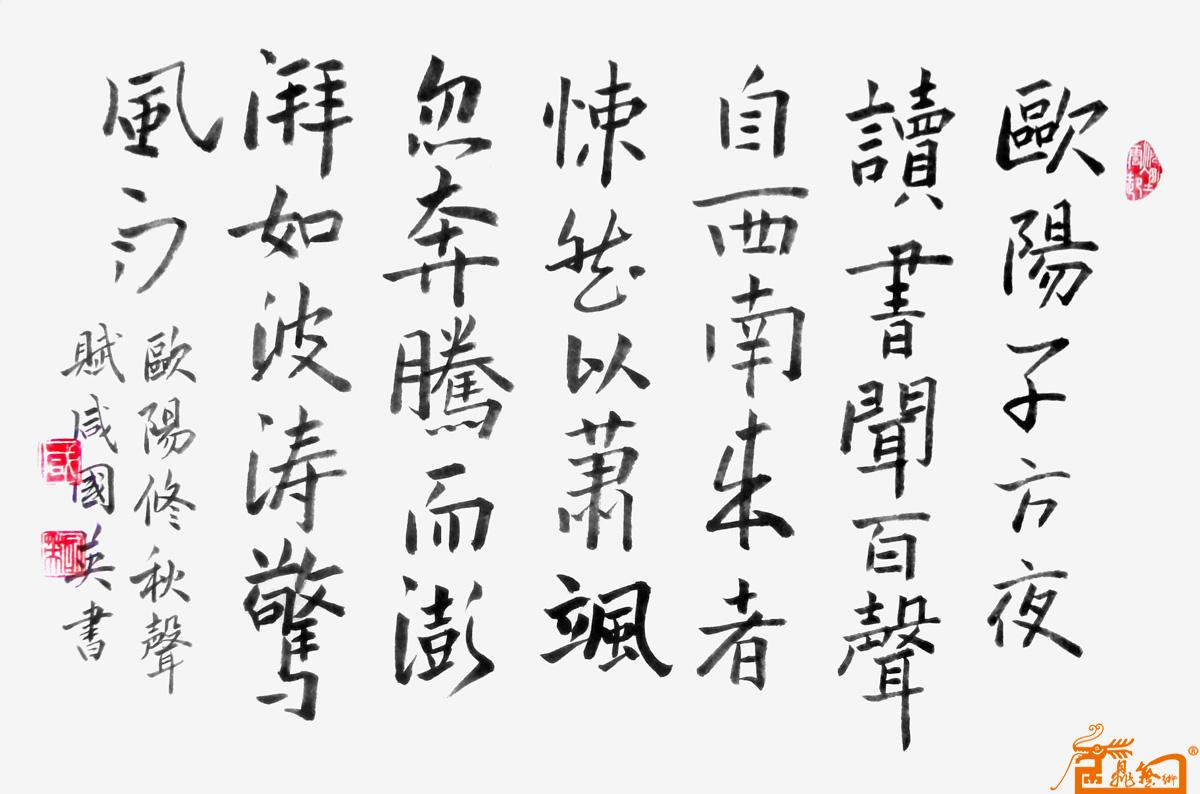 歐陽子方夜
讀書聞百聲
自西南来者
悚然以蕭颯
忽奔騰而澎
湃如波涛驚
風汋
歐陽修秋聲
賦咸國英書